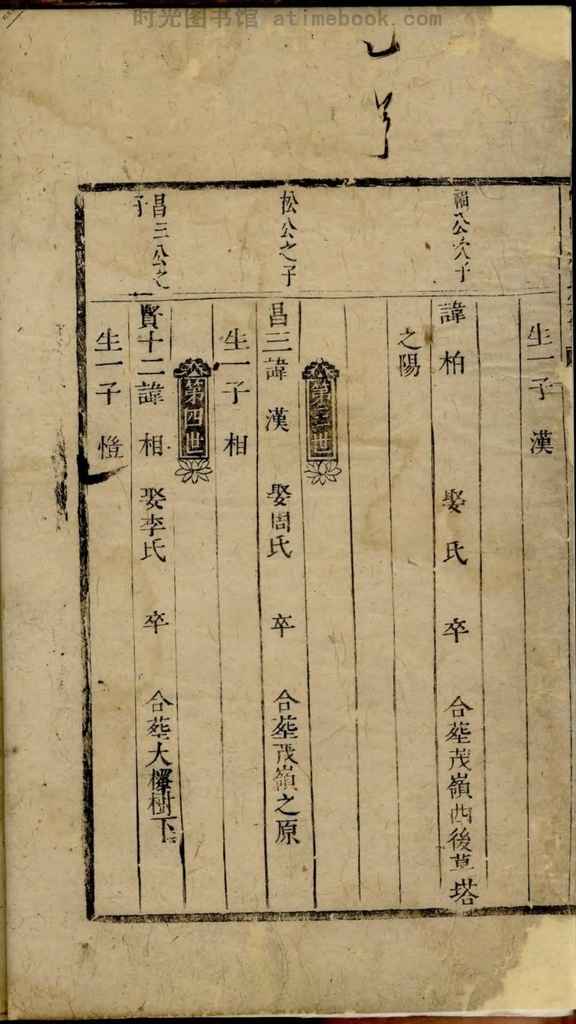 时光图书馆 atimebook.com
生一子 漢
福公次子
諱柏 娶 氏 卒 合葬茂嶺西後草塔
之陽
第三世
松公之子
昌三諱漢 娶周氏 卒 合葬茂嶺之原
生一子相
第四世
昌三公之子
賢十二諱相 娶李氏 卒 合葬大樹下
生一子 燈